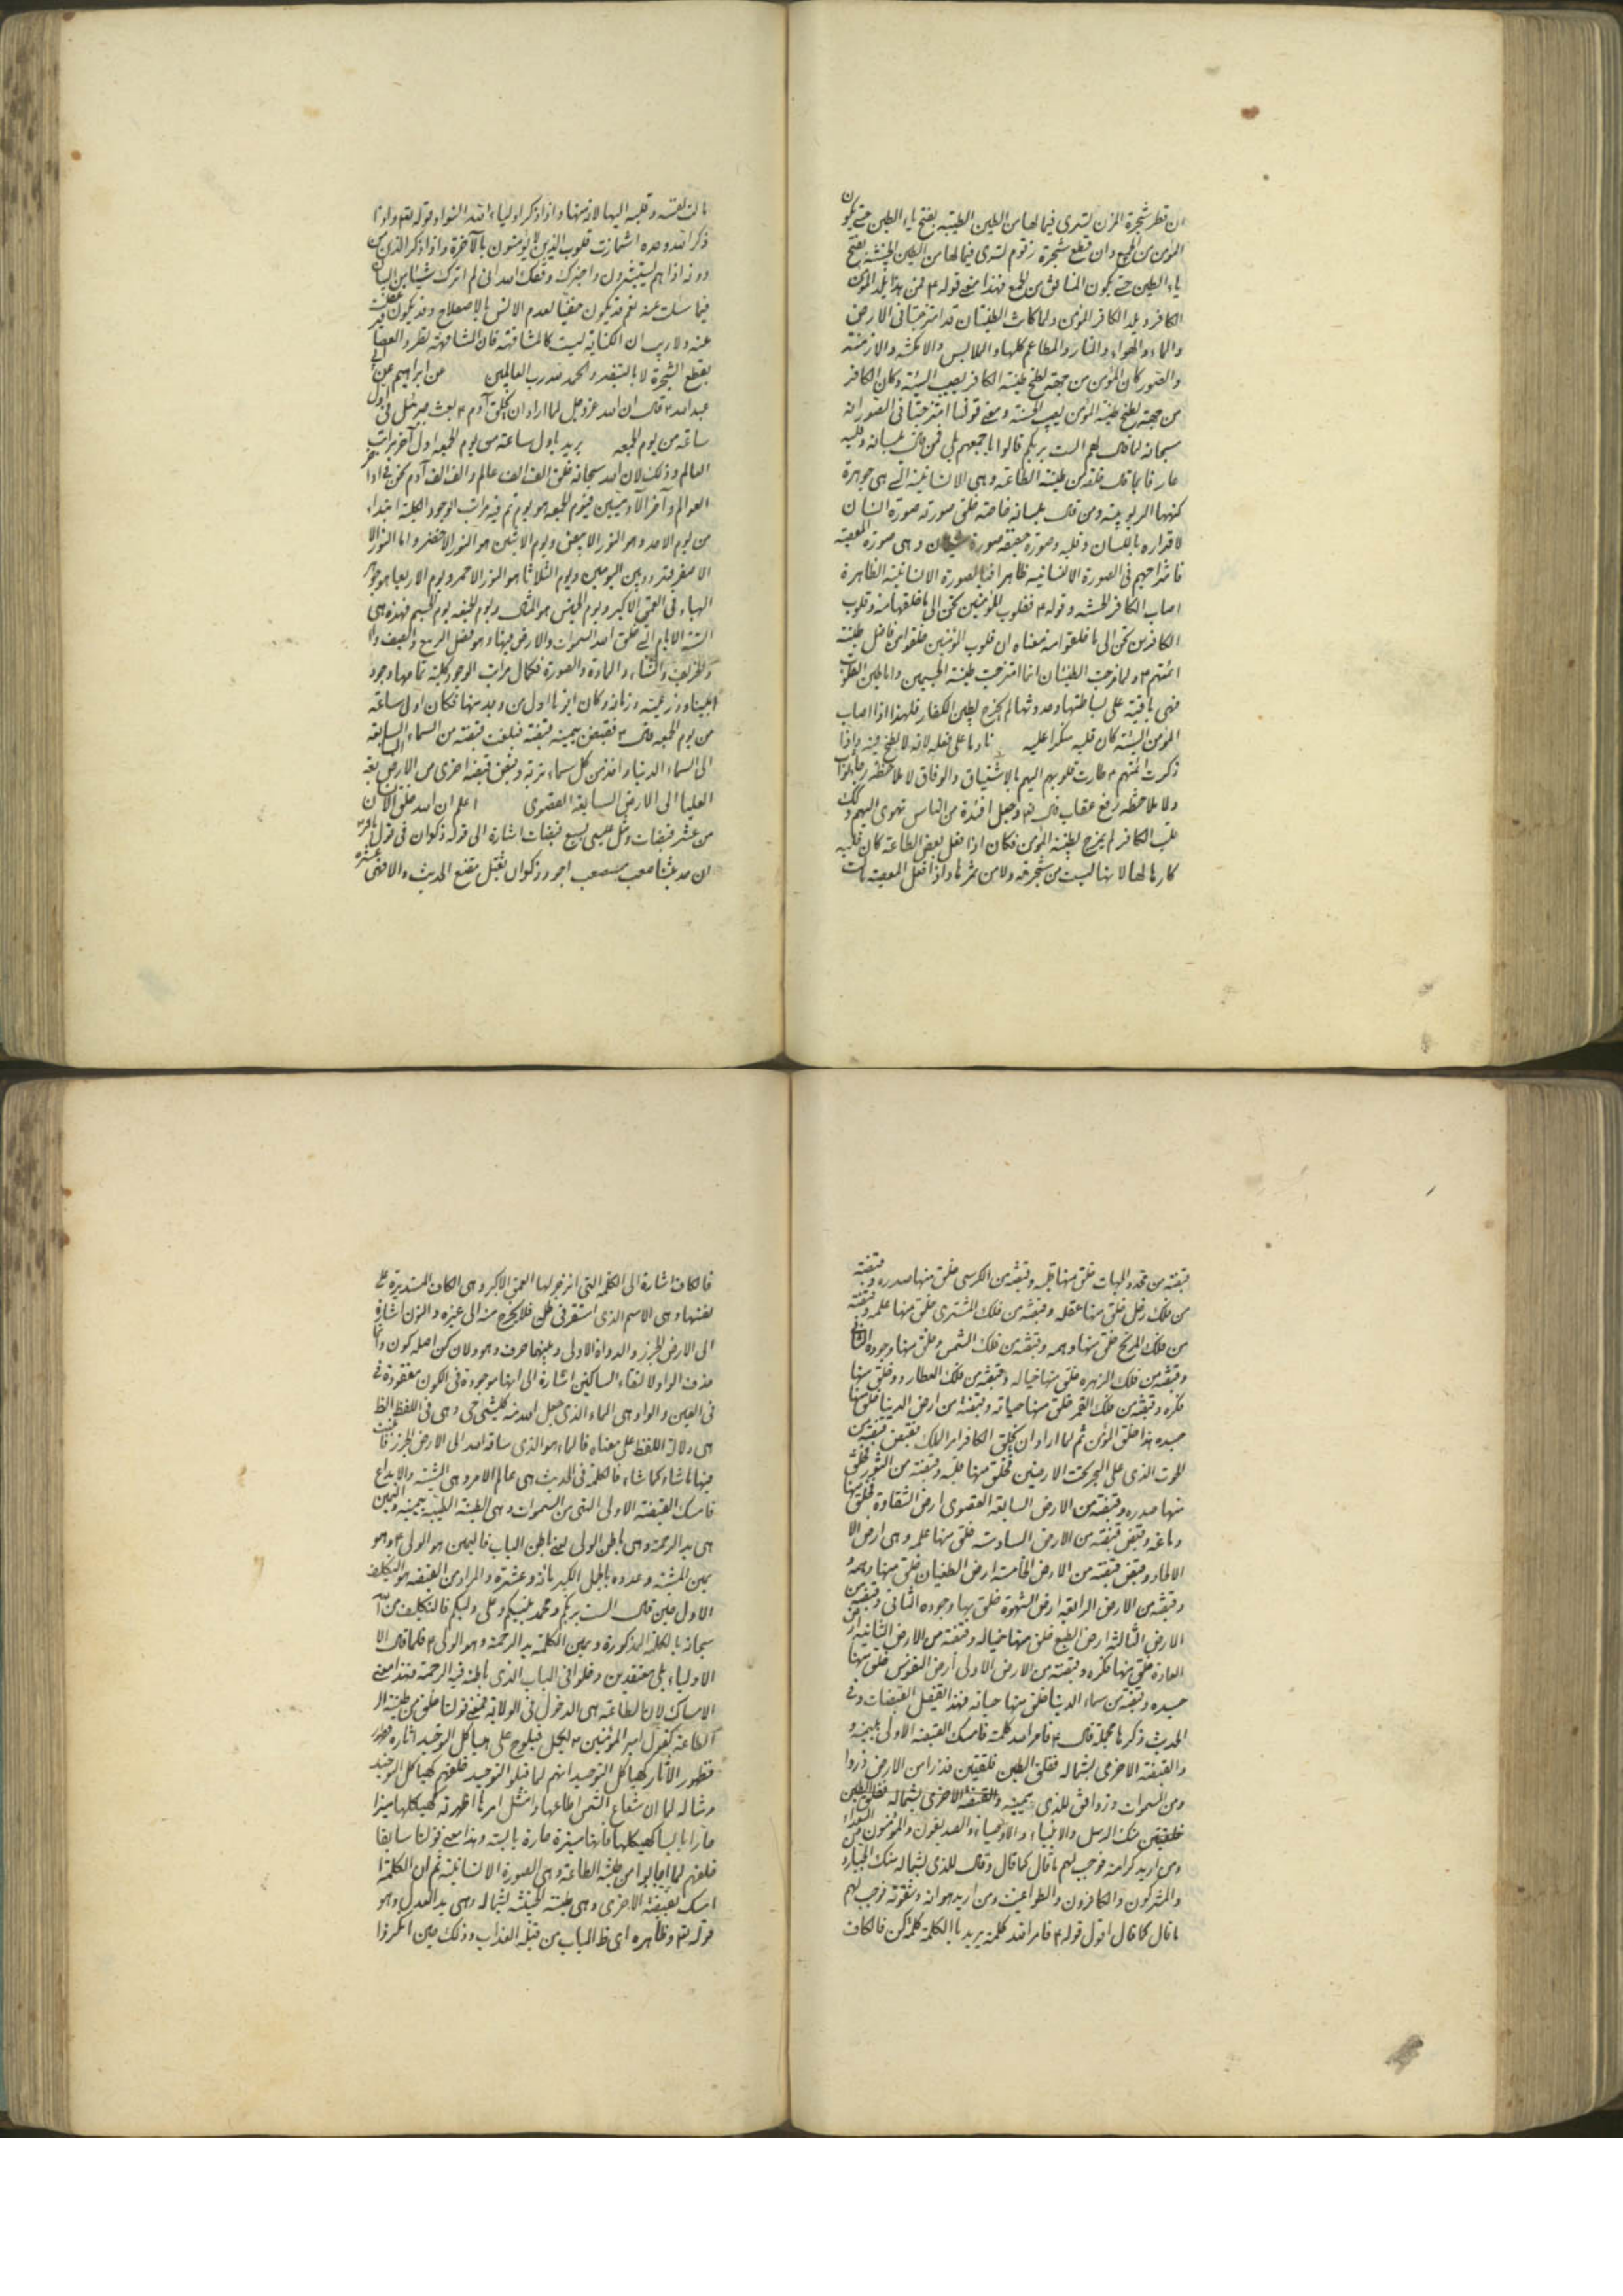 ان قطر شجرة المزن لتدى فيما لها من الطين الطيبة بفتح ياء الطين حتى يكون
المؤمن من الجمع وان قطع شجرة زقوم لتدى فيما لها من الطين الخبيثة بفتح
ياء الطين حتى يكون المنافق من الجمع فهذا معنى قوله ع فمن هذا يلد المؤمن
الكافر ويلد الكافر المؤمن ولما كانت الطينتان قد امتزجتا فى الارض
والماء والهواء والنار والمطاعم كلها والملابس والامكنة والازمنة
والصور كان المؤمن من جهة لطخ طينة الكافر يصيب السيئة وكان الكافر
من جهة لطخ طينة المؤمن يصيب الحسنة ومعنى قولنا امتزجتا فى الصور انه
سبحانه لما قال لهم الست بربكم قالوا باجمعهم بلى فمن قال بلسانه وقلبه
عارفا بما قال خلقه من طينة الطاعة وهى الانسانية التى هى جوهرة
كنهها الربوبية ومن قال بلسانه خاصة خلق صورته صورة انسان
لاقراره باللسان وقلبه وصورة حقيقة صورة شيطان وهى صورة المعصية
فاشتراجهم فى الصورة الانسانية ظاهرا فبالصورة الانسانية الظاهرة
اصاب الكافر الحسنة وقوله ع فقلوب المؤمنين تحن الى ما خلقوا منه وقلوب
الكافرين تحن الى ما خلقوا منه معناه ان قلوب المؤمنين خلقوا من فاضل طينة
ائمتهم ع ولما مزجت الطينتان انما امتزجت طينة الجسمين واما طين القلوب
فهى باقية على بساطتها وحدوثها لم يخرج لطين الكفار فلهذا اذا اصاب
المؤمن السيئة كان قلبه منكرا عليه نادما على فعله لانه لا لطخ فيه واذا
ذكرت ائمتهم ع طارت قلوبهم اليهم بالاشتياق والوفاق لا لملاحظة رجاء ثواب
ولا لملاحظة رفع عقاب قال تعالى وجعل افئدة من الناس تهوى اليهم وكك
قلب الكافر لم يمزج بطينة المؤمن فكان اذا فعل بعض الطاعة كان قلبه
كارها لها لانها ليست من شجرته ولا من ثمرها واذا فعل المعصية مالت
ما لت نفسه وقلبه اليها لانه منها واذا ذكر اولياء الله اشمأز وقوله تعالى واذا
ذكر الله وحده اشمأزت قلوب الذين لا يؤمنون بالآخرة واذا ذكر الذين من
دونه اذا هم يستبشرون واخبرك وفقك الله انى لم اترك شيئا من البيان
فيما سئلت عنه نعم قد يكون خفيا لعدم الانس بالاصطلاح وقد يكون
عنه ولا ريب ان الكتابة ليست كالمشافهة فان المشافهة
بقطع الشجرة لا بالتبصر والحمد لله رب العالمين عن ابراهيم عن ابى
عبد الله ع قال ان الله عز وجل لما اراد ان يخلق آدم ع بعث جبرئيل فى اول
ساعة من يوم الجمعة يريد باول ساعة من يوم الجمعة اول آخر مراتب
العالم وذلك لان الله سبحانه خلق الف الف عالم والف الف آدم نحن فى آخر
العوالم وآخر الآدميين فيوم الجمعة هو يوم تم فيه مراتب الوجود الكلية ابتداء
من يوم الاحد وهو النور الابيض ويوم الاثنين هو النور الاخضر واما النور الا
الاصفر فتردد بين اليومين ويوم الثلاثا هو النور الاحمر ويوم الاربعا هو جوهر
الهباء فى العمق الاكبر ويوم الخميس هو المثال ويوم الجمعة يوم الجسم فهذه هى
الستة الايام التى خلق الله السموات والارض فيها وهو فصل الربيع والصيف
والخريف والشتاء والمادة والصورة فكمال مراتب الوجود كلية تمامها وجود
من يوم الجمعة قال ع فقبض بيمينه قبضة فبلغت قبضته من السماء السابعة
الى السماء الدنيا واخذ من كل سماء تربة وقبض قبضة اخرى من الارض السابعة
العليا الى الارض السابعة القصوى اعلم ان الله خلق الانسان
من عشر قبضات ومثل عيسى بسبع قبضات اشارة الى قوله ذكوان فى قول الباقر ع
ان حديثنا صعب مستصعب اجرد ذكوان ثقيل مقنع الحديث والا فهى عشرة
قبضة من محدد الجهات خلق منها قلبه وقبضة من الكرسى خلق منها صدره وقبضة
من فلك زحل خلق منها عقله وقبضة من فلك المشترى خلق منها علمه وقبضة
من فلك المريخ خلق منها وهمه وقبضة من فلك الشمس وخلق منها وجوده الثانى
وقبضة من فلك الزهرة خلق منها خياله وقبضة من فلك العطارد وخلق منها
فكره وقبضة من فلك القمر خلق منها حياته وقبضة من ارض الدنيا خلق منها
جسده هذا خلق المؤمن ثم لما اراد ان يخلق الكافر امر الملك بقبض قبضة من
الحوت الذى على البحر تحت الارضين فخلق منها قلبه وقبضة من الثور فخلق
منها صدره وقبضة من الارض السابعة القصوى ارض الشقاوة فخلق منها
دماغه وقبض قبضة من الارض السادسة خلق منها علمه وهى ارض الا
الالحاد وقبض قبضة من الارض الخامسة ارض الطغيان خلق منها وهمه و
وقبضة من الارض الرابعة ارض الشهوة خلق بها وجوده الثانى وقبضة من
الارض الثالثة ارض الطبع خلق منها خياله وقبضة من الارض الثانية ارض
العادة خلق منها فكره وقبضة من الارض الاولى ارض النفوس خلق منها
جسده وقبضة من سماء الدنيا خلق منها حياته فهذا تفصيل القبضات وفى
الحديث ذكرها مجملة قال ع فامر الله كلمته فامسك القبضة الاولى بيمينه و
والقبضة الاخرى بشماله ففلق الطين فلقتين فذرا من الارض ذروا
ومن السموات وزوا فق للذى بيمينه والقبضة الاخرى بشماله ففلق الطين
فلقتين منك الرسل والانبياء والاوصياء والصديقون والمؤمنون والسعداء
ومن اريد كرامته فوجب لهم ما قال كما قال وقال للذى بشماله منك الجبارون
والمشركون والكافرون والطواغيت ومن اريد هوانه وشقوته فوجب لهم
ما قال كما قال اقول قوله ع فامر الله كلمته يريد بالكلمة كلمة كن فالكاف
فالكاف اشارة الى الكلمة التى انزجر لها العمق الاكبر وهى الكاف المستديرة على
نفسها وهى الاسم الذى استقر فى ظل فلا يخرج منه الى غيره والنون اشارة
الى الارض الجرز والدواة الاولى وبينهما حرف وهو ولان كن اصله كون وانما
حذف الواو لالتقاء الساكنين اشارة الى انها موجودة فى الكون مفقودة فى
فى العين والواو هى الماء الذى جعل الله منه كل شئ حى وهى فى اللفظ الظ
هى دلالة اللفظ على معناه فالماء هو الذى ساقه الله الى الارض الجرز فانبت
فيها ما شاء كما شاء فالكلمة فى الحديث هى عالم الامر وهى المشية والابداع
فامسك القبضة الاولى التى من السموات وهى الطينة الطيبة بيمينه واليمين
هى يد الرحمة وهى باطن الولى يعنى باطن الباب فاليمين هو الولى ع وهو
يمين المشية وعدده بالجمل الكبير مائة وعشرة والمراد من القبضة هو التكليف
الاول حين قال الست بربكم ومحمد نبيكم وعلى وليكم فالتكليف من الله
سبحانه بالكلمة المذكورة ويمين الكلمة يد الرحمة وهو الولى ع فلما قال الا
الاولياء بلى معتقدين دخلوا فى الباب الذى باطنه فيه الرحمة فهذا معنى
الامساك لان الطاعة هى الدخول فى الولاية فمعنى قولنا خلق من طينة ال
الطاعة كقول امير المؤمنين ع لكميل فيلوح على هياكل التوحيد اثاره فظهر
فظهور الاثار كهياكل التوحيد انهم لما قبلوا التوحيد خلقهم كهياكل التوحيد
ومثاله لما ان شعاع الشمس اطاعها وامتثل امرها اظهرته كهيكلها منيرا
حارا يابسا كهيكلها فانها منيرة حارة يابسة وهذا معنى قولنا سابقا
خلقهم لما اجابوا من طينة الطاعة وهى الصورة الانسانية ثم ان الكلمة ا
امسك بقبضته الاخرى وهى طينة الخبيثة بشماله وهى يد العدل وهو
قوله تعالى وظاهره اى ظ الباب من قبله العذاب وذلك حين انكروا